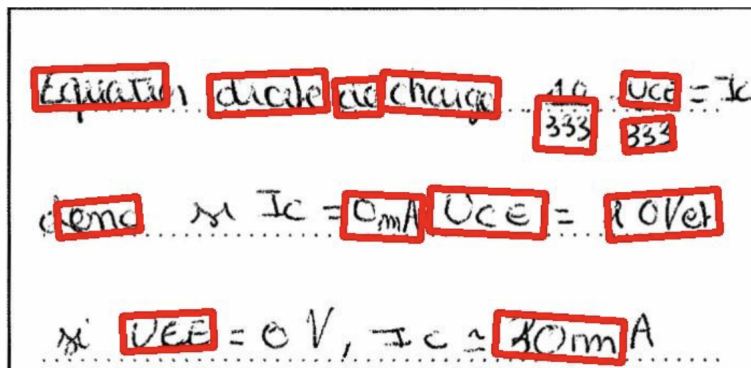 Equation droite de charge 10/333 - UCE/333 = Ic
donc si Ic = 0mA UCE = 10V et
si UCE = 0V, Ic ≃ 30mA